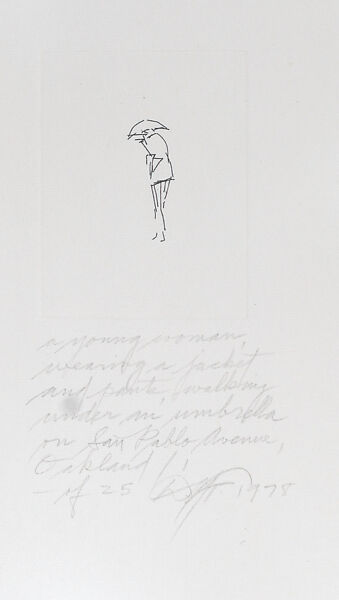 a young woman,
wearing a jacket
and pants, walking
under an umbrella
on San Pablo Avenue,
Oakland
– of 25 1978